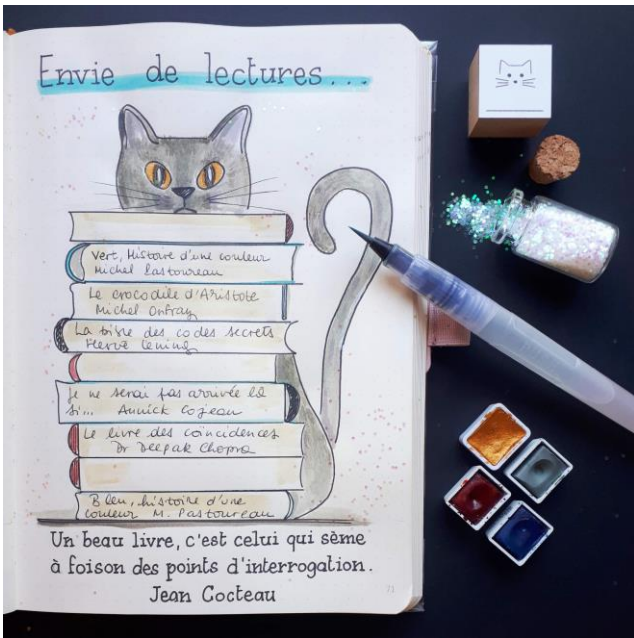 Envie de lectures...
Vert, Histoire d'une couleur
Michel Pastoureau
Le crocodile d'Aristote
Michel Onfray
La bible des codes secrets
Hervé Lehning
Je ne serai pas arrivée là
si... Annick Cojean
Le livre des coïncidences
Dr Deepak Chopra
Bleu, histoire d'une
couleur M. Pastoureau
Un beau livre, c'est celui qui sème
à foison des points d'interrogation.
Jean Cocteau
71